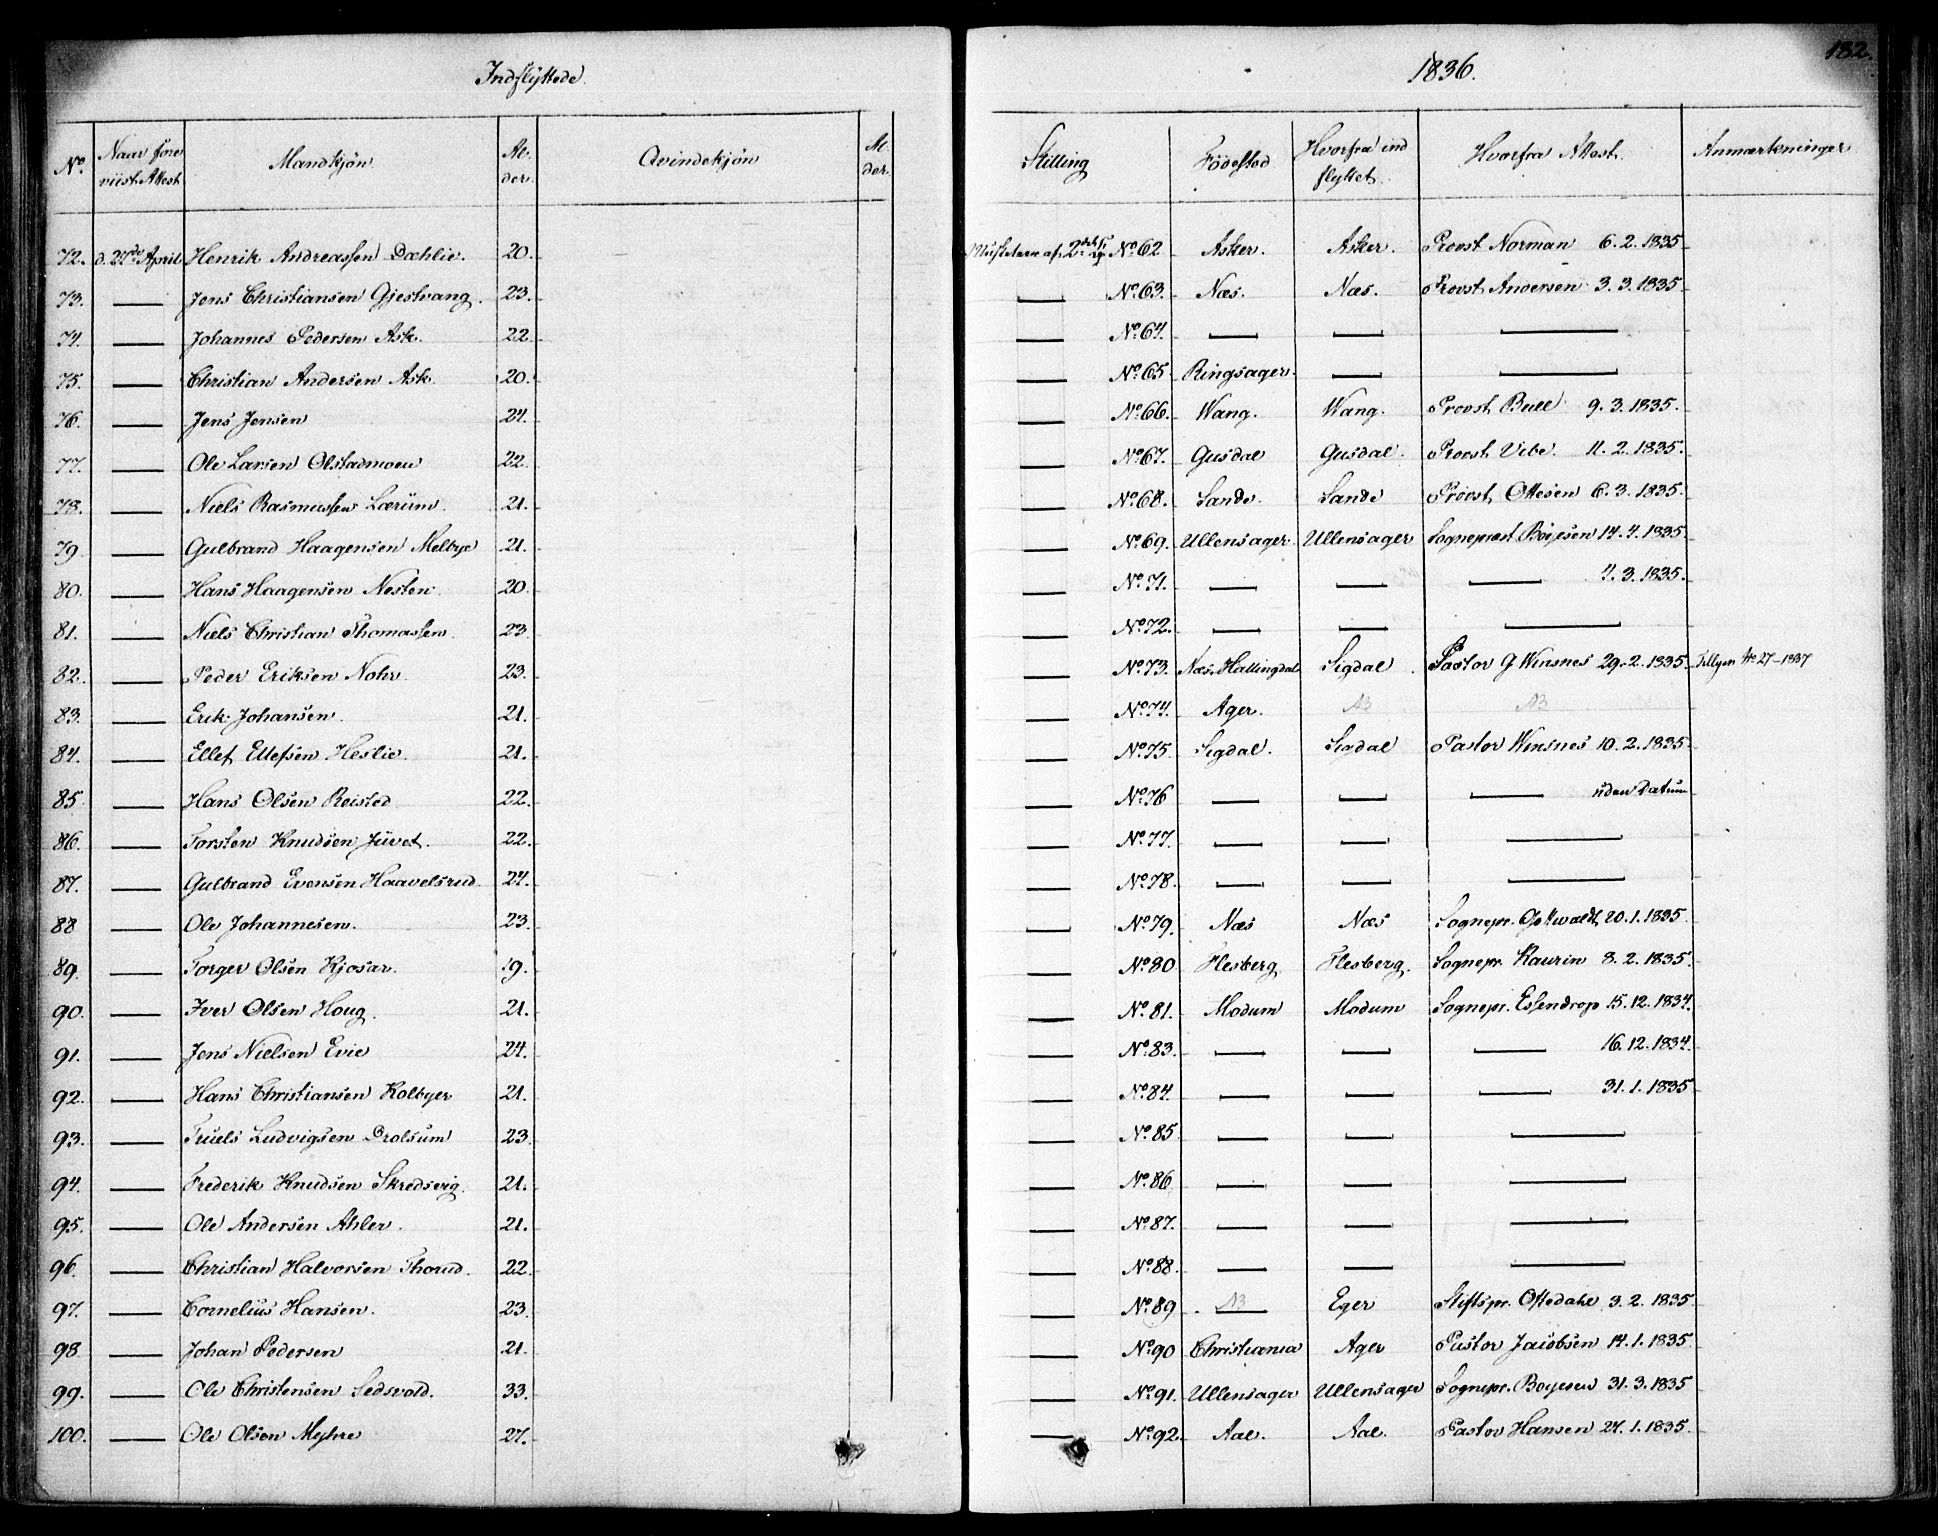 182.
Indflyttede. 1836.
No. Naar fore viist Attest Mandkjön Al- der Qvindekjön Al- der. Stilling Födested Hvorfra ind flyttet. Hvorfra Attest. Anmærkninger
72. d. 27de April Henrik Andreassen Dæhlie. 20. Musketerer af 2det No. 62 Asker. Asker. Provst Norman 6. 2. 1835
73. — Jens Christiansen Gjestvang. 23. — No. 63. Næs. Næs. Provst Andersen 3. 3. 1835
74. — Johannes Pedersen Ask. 22 — No. 64. — — —
75. — Christian Andersen Ask. 20. — No. 65 Ringsager. — —
76. — Jens Jensen 24. — No. 66. Wang. Wang. Provst Bull 9. 3. 1835.
77. — Ole Larsen Olstadmoen 22. — No. 67. Gusdal Gusdal. Provst Vibe. 11. 2. 1835.
78. — Niels Rasmussen Lærum. 21. — No. 68. Sande. Sande Provst Ottesen 6. 3. 1835.
79. — Gulbrand Haagensen Melbye 21. — No. 69. Ullensager. Ullensager Sogneprest Boyesen 14. 4. 1835.
80. — Hans Haagensen Nesten. 20. — No. 71. — — — 4. 3. 1835.
81. — Niels Christian Thomassen. 23. — No. 72. — — —
82. — Peder Eriksen Nohr. 23. — No. 73. Næs, Hallingdal Sigdal. Pastor G Winsnes 29. 2. 1835. Tillgen No 27-1837
83. — Erik Johansen. 21. — No. 74. Ager. NB NB
84. — Ellef Ellefsen Heslie. 21. — No. 75 Sigdal. Sigdal Pastor Winsnes 10. 2. 1835
85. — Hans Olsen Reisted 22. — No. 76 — — — uden Datum
86. — Torsten Knudsen Juvet. 22. — No. 77. — — —
87. — Gulbrand Evensen Haavelsrud. 24. — No. 78. — — —
88 — Ole Johannesen. 23. — No. 79. Næs Næs Sognepr. Gottwaldt 20. 1. 1835.
89. — Torger Olsen Kjosar. 19. — No. 80 Flesberg Flesberg. Sognepr. Kaurin 8. 2. 1835.
90. — Iver Olsen Houg. 21. — No. 81. Modum Modum Sognepr. Essendrop 15. 12. 1834.
91. — Jens Nielsen Evie 24. — No. 83. — — — 16. 12. 1834.
92. — Hans Christiansen Kolbyer 21. — No. 84. — — — 31. 1. 1835
93. — Truels Ludvigsen Drolsum 23. — No. 85. — — —
94. — Frederik Knudsen Skredsvig. 21. — No. 86 — — —
95. — Ole Andersen Ahler. 21. — No. 87. — — —
96. — Christian Halvorsen Thorud. 22. — No. 88. — — —
97. — Cornelius Hansen. 23. — No. 89. NB — Eger Stiftspr. Oftedahl 3. 2. 1835.
98 — Johan Pedersen 21. — No. 90 Christiania Ager Pastor Jacobsen 14. 1. 1835
99. — Ole Christensen Ledsvold. 33. — No. 91. Ullensager Ullensager Sognepr. Boyesen 31. 3. 1835
100. — Ole Olsen Myhre 27. — No. 92. Aal. Aal. Pastor Hansen 24. 1. 1835.